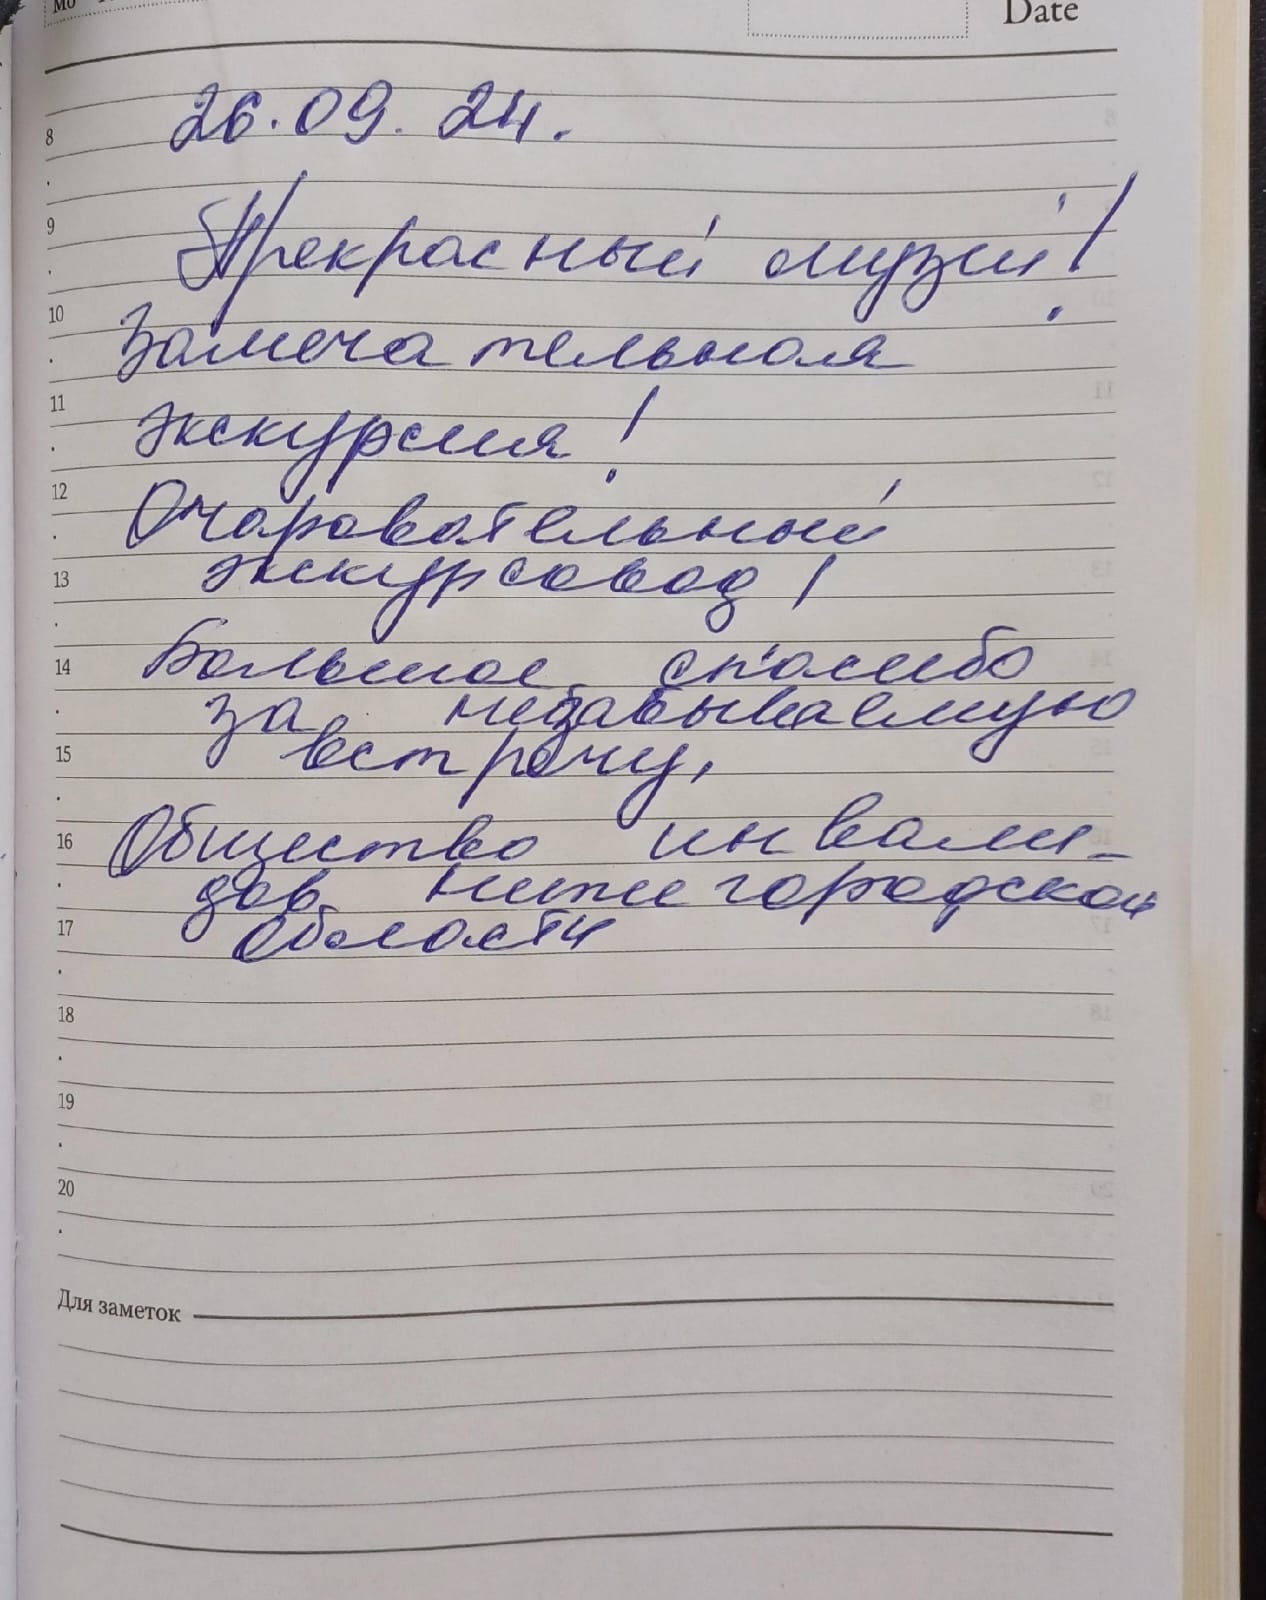 Date
26.09.24.
Прекрасный музей!
Замечательная
экскурсия!
Очаровательный
экскурсовод!
Большое спасибо
за незабываемую
встречу,
Общество инвали-
дов Нижегородской
области
8
9
10
11
12
13
14
15
16
17
18
19
20
Для заметок